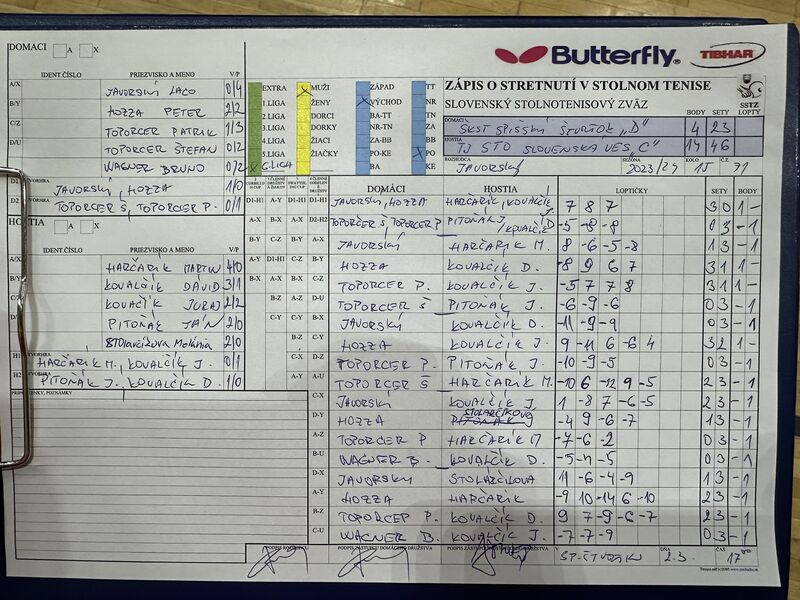 DOMÁCI A X
Butterfly
TIBHAR
IDENT.ČÍSLO PRIEZVISKO A MENO V/P
A/X JAVORSKÝ LACO 0/4
B/Y HOZZA PETER 2/2
C/Z TOPORCER PATRIK 1/3
D/U TOPORCER ŠTEFAN 0/2
WAGNER BRUNO 0/2
D1 JAVORSKÝ, HOZZA 1/0
D2 TOPORCER Š, TOPORCER P. 0/1
HOSTIA A X
IDENT.ČÍSLO PRIEZVISKO A MENO V/P
A/X HARČARIK MARTIN 4/0
B/Y KOVALČÍK DAVID 3/1
C/Z KOVAČIK JURAJ 2/2
PITOŇÁK JÁN 2/0
Melánia 2/0
H1 HARČARIK M., KOVALČÍK J. 0/1
H2 PITOŇÁK J. KOVALČÍK D. 1/0
EXTRA X MUŽI ZÁPAD TT
1 LIGA ŽENY X VÝCHOD NR
2 LIGA DORCI BA-TT TN
3 LIGA DORKY NR-TN ZA
4 LIGA ŽIACI ZA-BB BB
5 LIGA ŽIAČKY PO-KE X PO
6.LIGA BA KE
ZÁPIS O STRETNUTÍ V STOLNOM TENISE
SLOVENSKÝ STOLNOTENISOVÝ ZVÄZ
SSTZ
BODY SETY LOPTY
DOMÁCI ŠKST SPIŠSKÝ ŠTVRTOK „D" 4 23
HOSTIA TJ STO SLOVENSKÁ VES „C" 14 46
ROZHODCA JAVORSKÝ SEZÓNA 2023/24 KOLO 15 Č. 71
DOMÁCI HOSTIA LOPTIČKY SETY BODY
JAVORSKÝ, HOZZA HARČARIK, KOVALČIK J. 7 8 7 3 0 1 -
TOPORCER Š, TOPORCER P PITOŇÁK J, KOVALČÍK D -5 -8 -8 0 3 - 1
JAVORSKÝ HARČARIK M. 8 -6 -5 -8 1 3 - 1
HOZZA KOVALČÍK D. -8 9 6 7 3 1 1 -
TOPORCER P. KOVALČÍK J. -5 7 7 8 3 1 1 -
TOPORCER Š PITOŇÁK J. -6 -9 -6 0 3 - 1
JAVORSKÝ KOVALČIK D. -11 -9 -9 0 3 - 1
HOZZA KOVALČÍK J. 9 -11 6 -6 4 3 2 1 -
TOPORCER P. PITOŇÁK J. -10 -9 -5 0 3 - 1
TOPORCER Š HARČARIK M. -10 6 -12 9 -5 2 3 - 1
JAVORSKÝ KOVALČÍK J. 1 -8 7 -6 -5 2 3 - 1
HOZZA STOLARČIKOVÁ -4 9 -6 -7 1 3 - 1
TOPORCER P HARČARIK M -7 -6 -2 0 3 - 1
WAGNER B. KOVALČÍK D. -5 -4 -5 0 3 - 1
JAVORSKÝ STOLARČIKOVÁ 11 -6 -4 -9 1 3 - 1
HOZZA HARČARIK -9 10 -14 6 -10 2 3 - 1
TOPORCER P. KOVALČÍK D. 9 7 -9 -6 -7 2 3 - 1
WAGNER B. KOVALČÍK J. -7 -7 -9 0 3 - 1
PRIPOMIENKY, POZNÁMKY
PODPIS ROZHODCU PODPIS ZÁSTUPCU DOMÁCEHO DRUŽSTVA V SP. ŠTVRTOK DŇA 2.3. ČAS 17°°